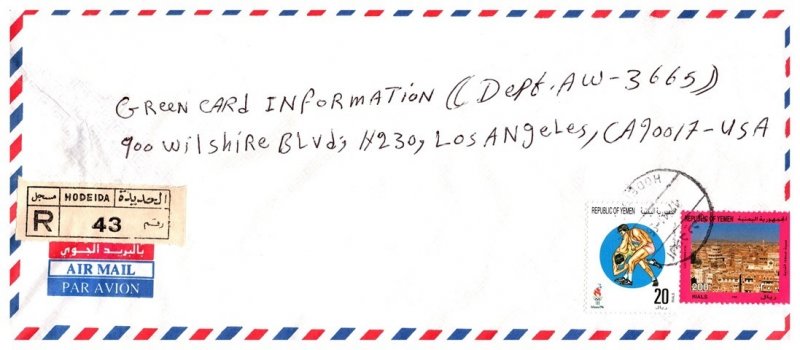 GREEN CARD INFORMATION ((Dept. AW-3665))
900 WilSHiRE BLVD; #230, LOS ANGeLeS, CA90017-USA
مسجل HODEIDA الحديدة
R 43 رقم
بالبريد الجوي
AIR MAIL
PAR AVION
REPUBLIC OF YEMEN الجمهورية اليمنية
20 ريال
REPUBLIC OF YEMEN الجمهورية اليمنية
200
RIALS ريال